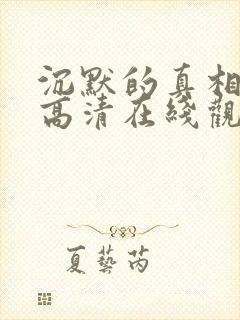 沉默的真相
高清在綫觀
夏藝芮